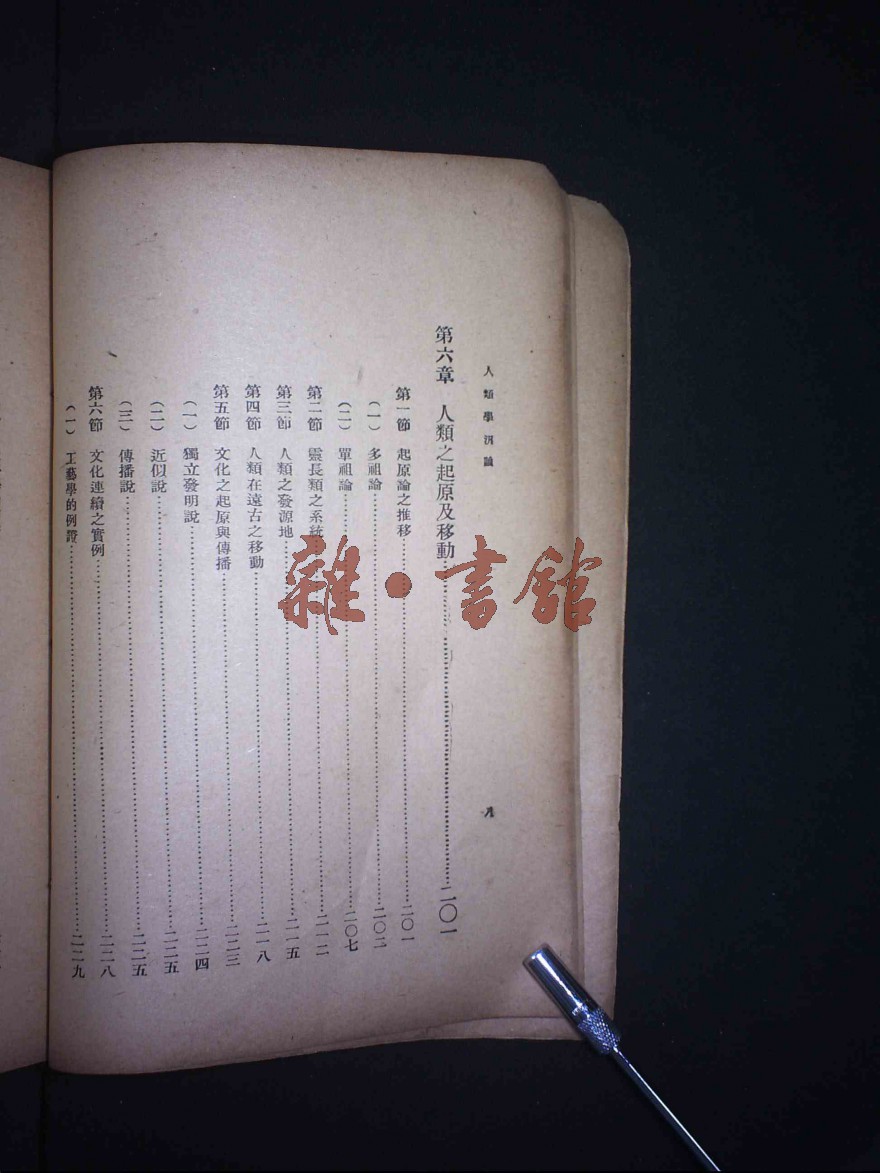 人類學汎論
八
第六章 人類之起原及移動……二〇一
第一節 起原論之推移……二〇一
（一） 多祖論……二〇二
（二） 單祖論……二〇七
第二節 靈長類之系統……二一二
第三節 人類之發源地……二一五
第四節 人類在遠古之移動……二一八
第五節 文化之起原與傳播……二二三
（一） 獨立發明說……二二四
（二） 近似說……二二五
（三） 傳播說……二二五
第六節 文化連續之實例……二二八
（一） 工藝學的例證……二二九
雜·書館